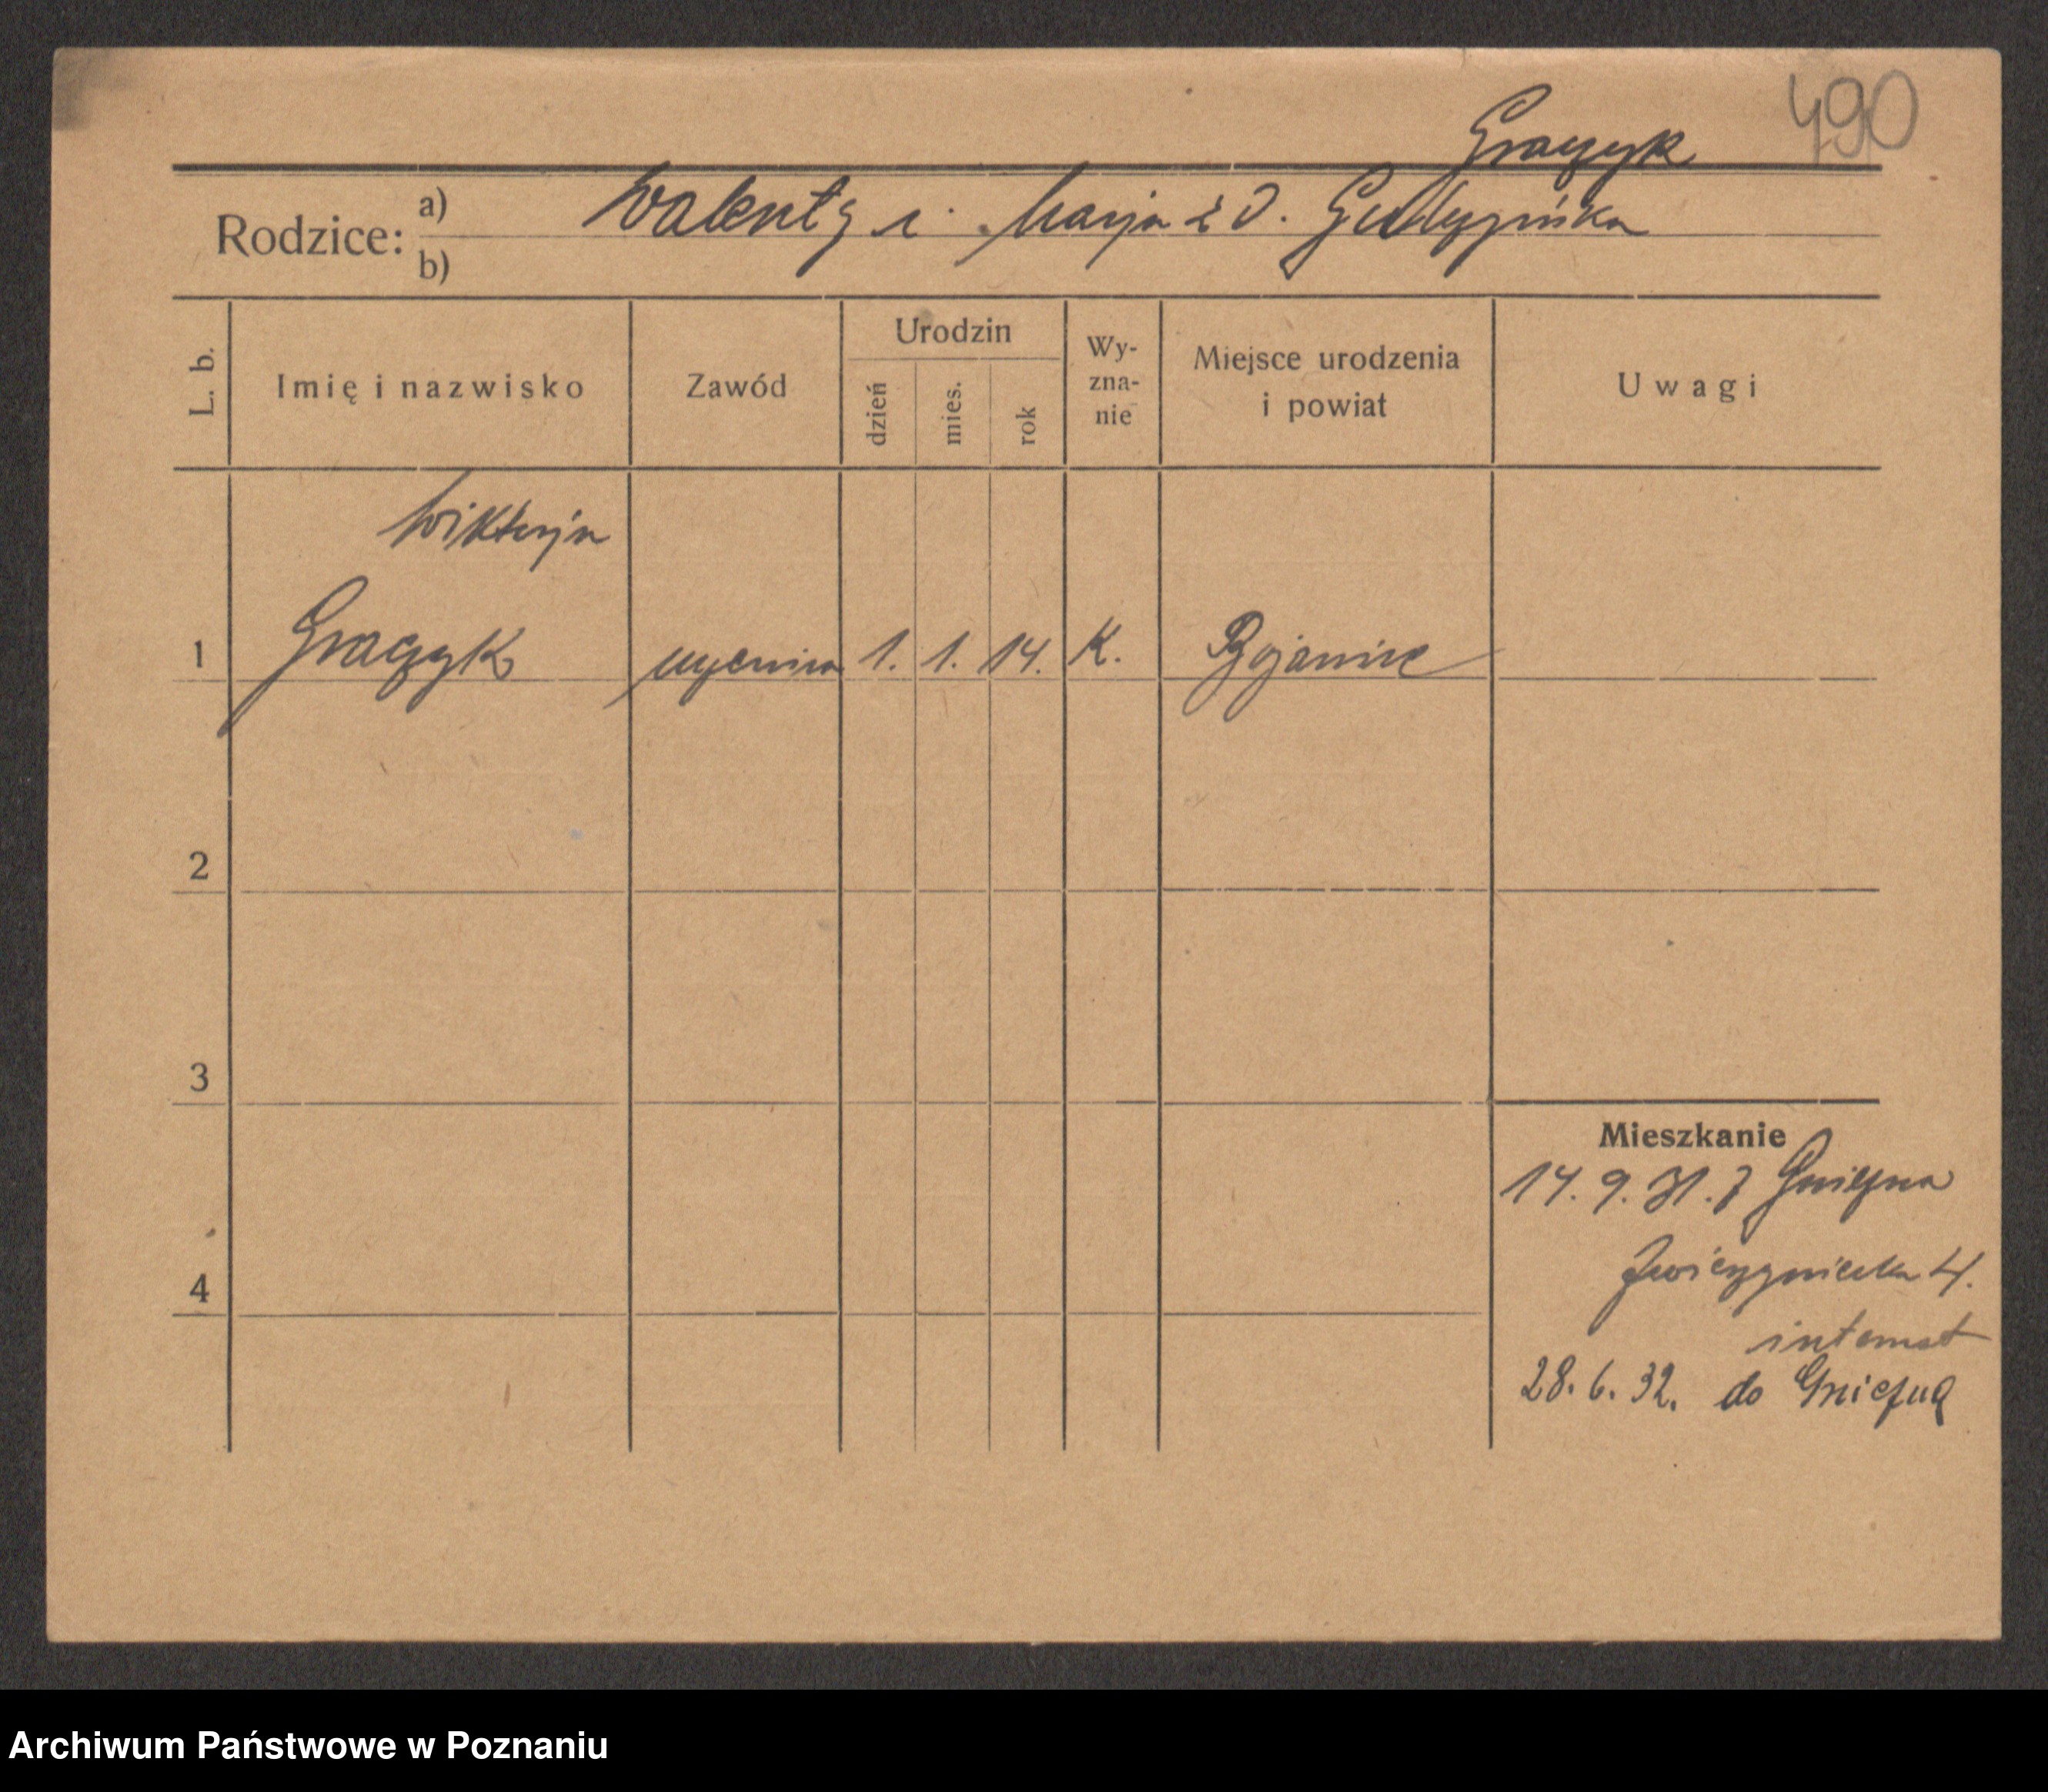 490
Graczyk
Rodzice: a) Walenty i Marja z d.
b)
L. b.
Imię i nazwisko
Zawód
Urodzin
dzień
mies.
rok
Wy-
zna-
nie
Miejsce urodzenia
i powiat
Uwagi
Wiktorja
1 Graczyk uczenica 1. 1. 14. K. Bojanice
2
3
4
Mieszkanie
14. 9. 31. z Gniezna
Zwierzyniecka 4.
internat
28. 6. 32. do Gniezna
Archiwum Państwowe w Poznaniu